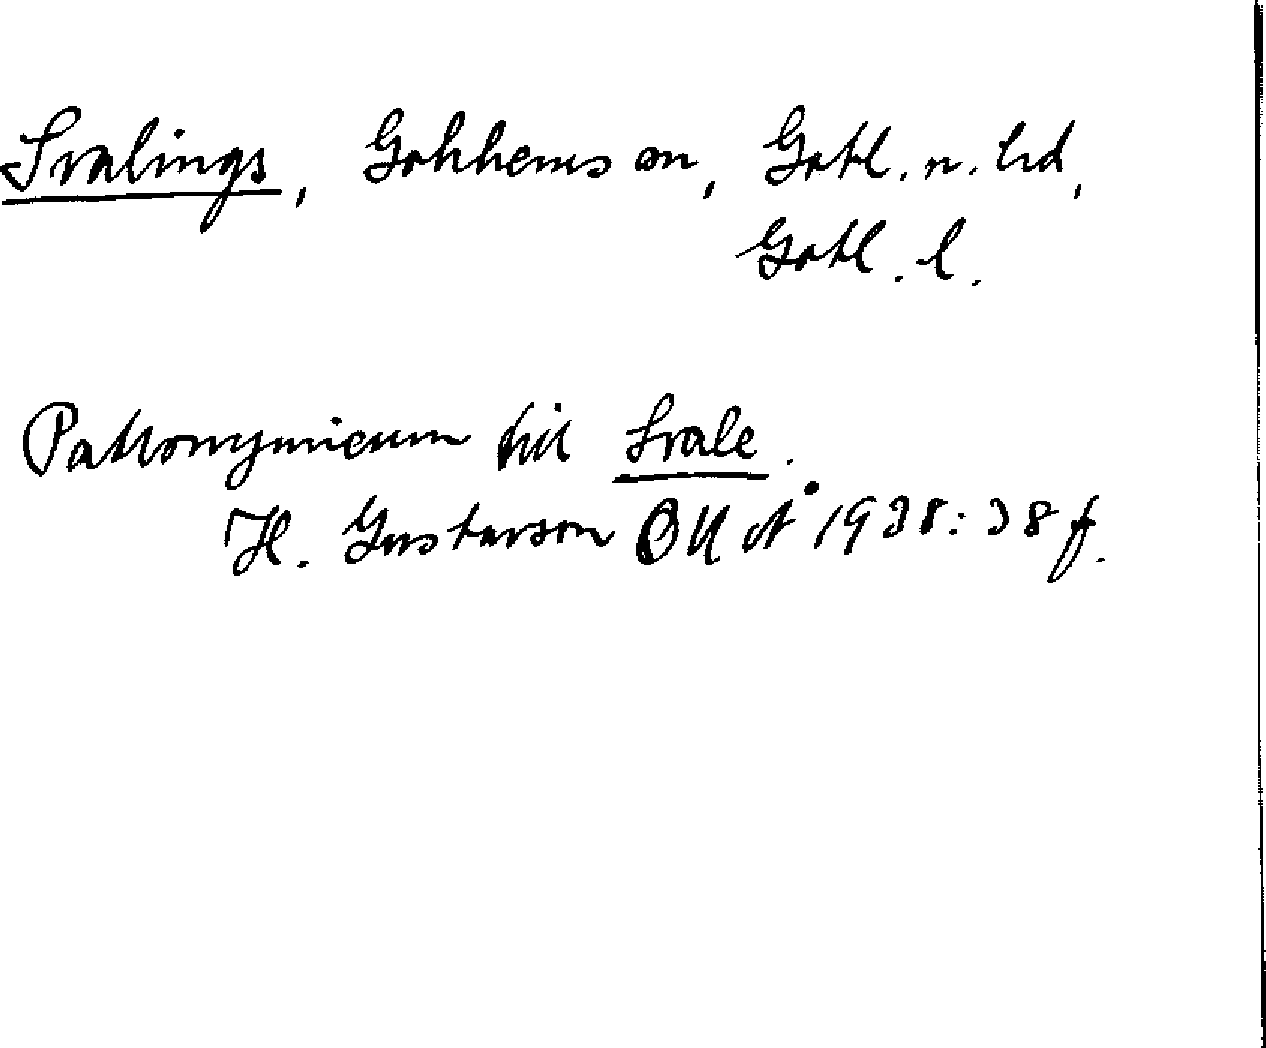 Svalings, Gothems sn, Gotl. n. hd,
Gotl. l.
Patronymicum till Svale.
H. Gustavson OUÅ 1938:38 f.